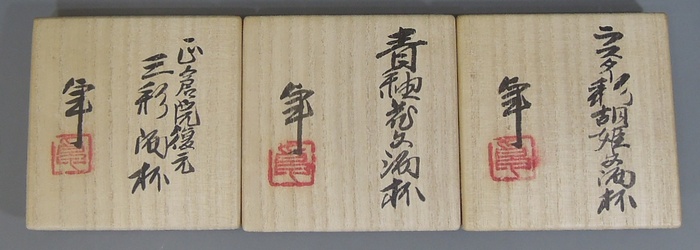 ラスター彩胡姫文酒杯
卓
青釉花文酒杯
卓
正倉院復元
三彩酒杯
卓